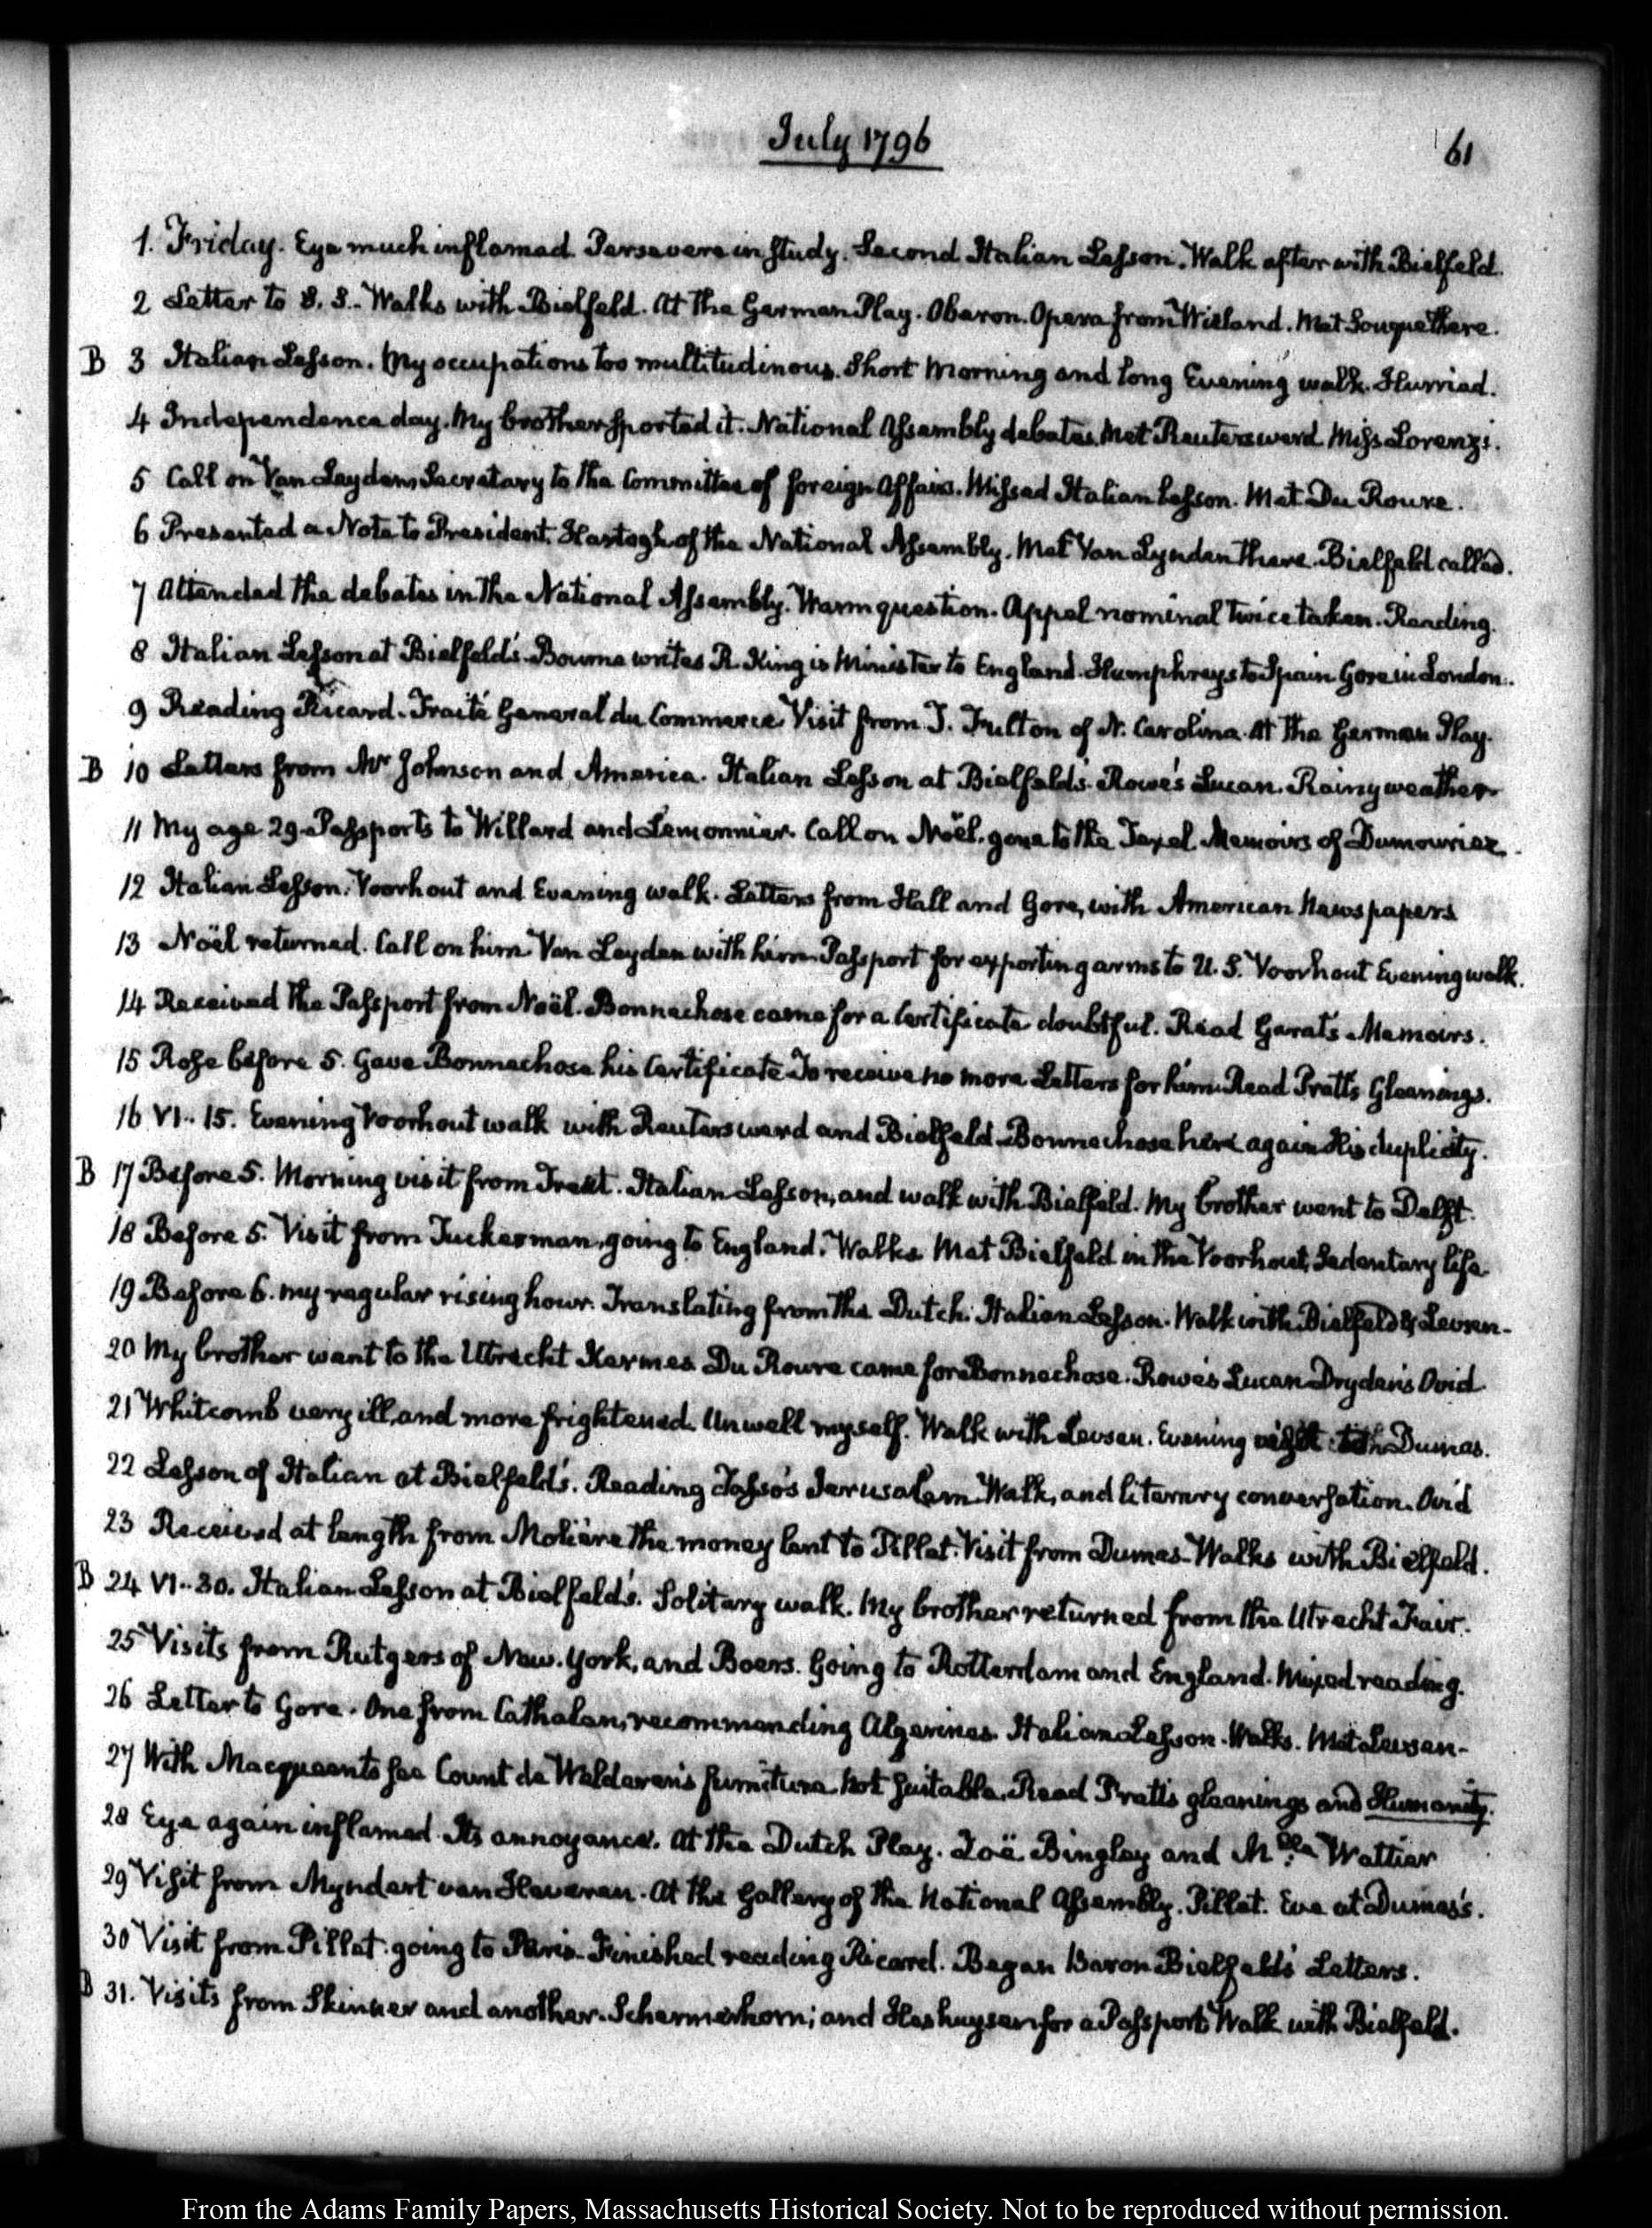 July 1796
61
1. Friday. Eye much inflamed. Persevere in study. Second Italian Lesson. Walk after with Bielfeld.
2 Letter to S. S. Walks with Bielfeld. At the German Play. Oberon. Opera from Wieland. Met Souque there.
B 3 Italian Lesson. My occupations too multitudinous. Short Morning and long Evening walk. Hurried.
4 Independence day. My brother sported it. National Assembly debates. Met Reutersward Miss Lorenzi.
5 Call on Van Leydens Secretary to the Committee of foreign Affairs. Missed Italian lesson. Met Du Roure.
6 Presented a Note to President Hartogh of the National Assembly. Met Van Lynden there. Bielfeld called.
7 Attended the debates in the National Assembly. Warm question. Appel nominal twice taken. Reading.
8 Italian Lesson at Bielfeld's. Bourne writes R. King is Minister to England. Humphreys to Spain Gore in London.
9 Reading Ricard. Traité General du Commerce. Visit from J. Fulton of N. Carolina. At the German Play.
B 10 Letters from Mr Johnson and America. Italian Lesson at Bielfeld's. Rowe's Lucan. Rainy weather
11 My age 29. Passports to Willard and Lemonnier. Call on Noël. gone to the Texel. Memoirs of Dumouriez.
12 Italian Lesson. Voorhout and Evening walk. Letters from Hall and Gore, with American Newspapers
13 Noël returned. Call on him. Van Leyden with him. Passport for exporting arms to U. S. Voorhout Evening walk.
14 Received the Passport from Noël. Bonnechose came for a Certificate doubtful. Read Garat's Memoirs.
15 Rose before 5. Gave Bonnechose his Certificate To receive no more Letters for him. Read Pratt's Gleanings.
16 VI. 15. Evening Voorhout walk with Reutersward and Bielfeld. Bonnechose here again His duplicity.
B 17 Before 5. Morning visit from Treat. Italian Lesson, and walk with Bielfeld. My brother went to Delft.
18 Before 5. Visit from Tuckerman, going to England. Walks Met Bielfeld in the Voorhout, Sedentary life
19 Before 6. my regular rising hour. Translating from the Dutch. Italian Lesson. Walk with Bielfeld & Levsen.
20 My brother went to the Utrecht Kermes. Du Roure came for Bonnechose. Rowe's Lucan Dryden's Ovid
21 Whitcomb very ill, and more frightened. Unwell myself. Walk with Levsen. Evening Dumas.
22 Lesson of Italian at Bielfeld's. Reading Tasso's Jerusalem. Walk, and literary conversation. Ovid
23 Received at length from Molière the money lent to Pillet. Visit from Dumas. Walks with Bielfeld.
B 24 VI. 30. Italian Lesson at Bielfeld's. Solitary walk. My brother returned from the Utrecht Fair.
25 Visits from Rutgers of New. York, and Boers. Going to Rotterdam and England. Mixed reading.
26 Letter to Gore. One from Cathalan, recommending Algerines. Italian Lesson. Walks. Met Levsen.
27 With Macqueen to see Count de Walderen's furniture. Not suitable. Read Pratt's gleanings and Humanity.
28 Eye again inflamed. Its annoyance. At the Dutch Play. Zoë. Bingley and Mlle Wattier
29 Visit from Myndert van Heveren. At the Gallery of the National Assembly. Pillet. Eve at Dumas's.
30 Visit from Pillet going to Paris. Finished reading Ricard. Began Baron Bielfeld's Letters.
B 31. Visits from Skinner and another. Schermerhorn; and Heshuysen for a Passport. Walk with Bielfeld.
From the Adams Family Papers, Massachusetts Historical Society. Not to be reproduced without permission.